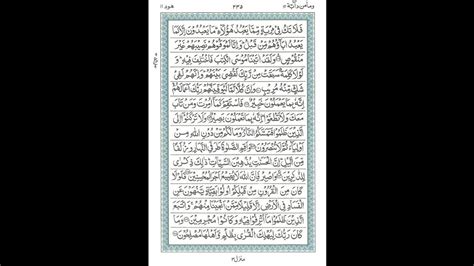 وما من دآبة ١٢ ٢٣٥ هود ١١
فَلَا تَكُ فِىْ مِرْيَةٍ مِّمَّا يَعْبُدُ هٰٓؤُلَآءِ ؕ مَا يَعْبُدُوْنَ اِلَّا كَمَا
يَعْبُدُ اٰبَآؤُهُمْ مِّنْ قَبْلُ ؕ وَاِنَّا لَمُوَفُّوْهُمْ نَصِيْبَهُمْ غَيْرَ
مَنْقُوْصٍ ۝ وَلَقَدْ اٰتَيْنَا مُوْسَى الْكِتٰبَ فَاخْتُلِفَ فِيْهِ ؕ وَ
لَوْلَا كَلِمَةٌ سَبَقَتْ مِنْ رَّبِّكَ لَقُضِىَ بَيْنَهُمْ ؕ وَاِنَّهُمْ لَفِىْ
شَكٍّ مِّنْهُ مُرِيْبٍ ۝ وَاِنَّ كُلًّا لَّمَّا لَيُوَفِّيَنَّهُمْ رَبُّكَ اَعْمَالَهُمْ ؕ
اِنَّهٗ بِمَا يَعْمَلُوْنَ خَبِيْرٌ ۝ فَاسْتَقِمْ كَمَآ اُمِرْتَ وَمَنْ تَابَ
مَعَكَ وَلَا تَطْغَوْا ؕ اِنَّهٗ بِمَا تَعْمَلُوْنَ بَصِيْرٌ ۝ وَلَا تَرْكَنُوْٓا اِلَى
الَّذِيْنَ ظَلَمُوْا فَتَمَسَّكُمُ النَّارُ ۙ وَمَا لَكُمْ مِّنْ دُوْنِ اللّٰهِ مِنْ
اَوْلِيَآءَ ثُمَّ لَا تُنْصَرُوْنَ ۝ وَاَقِمِ الصَّلٰوةَ طَرَفَىِ النَّهَارِ وَزُلَفًا
مِّنَ الَّيْلِ ؕ اِنَّ الْحَسَنٰتِ يُذْهِبْنَ السَّيِّاٰتِ ؕ ذٰلِكَ ذِكْرٰى
لِلذّٰكِرِيْنَ ۝ وَاصْبِرْ فَاِنَّ اللّٰهَ لَا يُضِيْعُ اَجْرَ الْمُحْسِنِيْنَ ۝ فَلَوْلَا
كَانَ مِنَ الْقُرُوْنِ مِنْ قَبْلِكُمْ اُولُوْا بَقِيَّةٍ يَّنْهَوْنَ عَنِ
الْفَسَادِ فِى الْاَرْضِ اِلَّا قَلِيْلًا مِّمَّنْ اَنْجَيْنَا مِنْهُمْ ۚ وَاتَّبَعَ
الَّذِيْنَ ظَلَمُوْا مَآ اُتْرِفُوْا فِيْهِ وَكَانُوْا مُجْرِمِيْنَ ۝ وَمَا
كَانَ رَبُّكَ لِيُهْلِكَ الْقُرٰى بِظُلْمٍ وَّاَهْلُهَا مُصْلِحُوْنَ ۝
منزل ٣